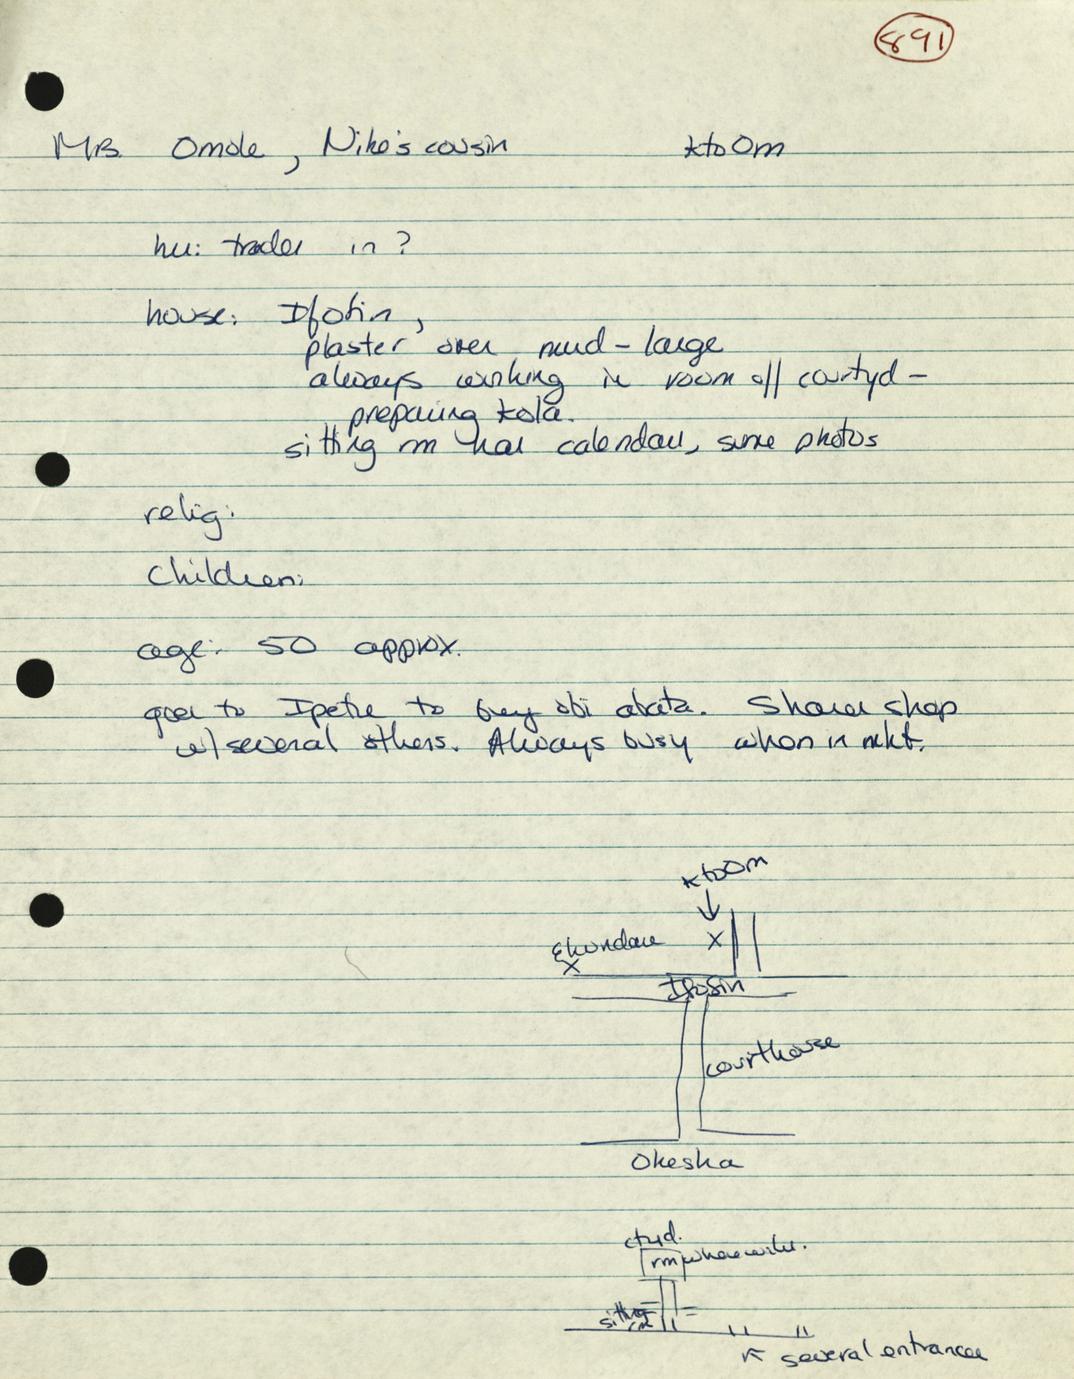 891
Mrs. Omole, Nike's cousin ktoOm
hu: trader in ?
house: Ifosin,
plaster over mud - large
always working in room off courtyd -
preparing kola.
sitting rm has calendars, some photos
relig:
Children:
age: 50 approx.
goes to Ipetu to buy obi abata. Shares shop
w/several others. Always busy when in mkt.
ktoOm
Ekundare
X
X
Ifosin
courthouse
Okesha
ctyd.
rm where works.
sitting
rm
several entrances